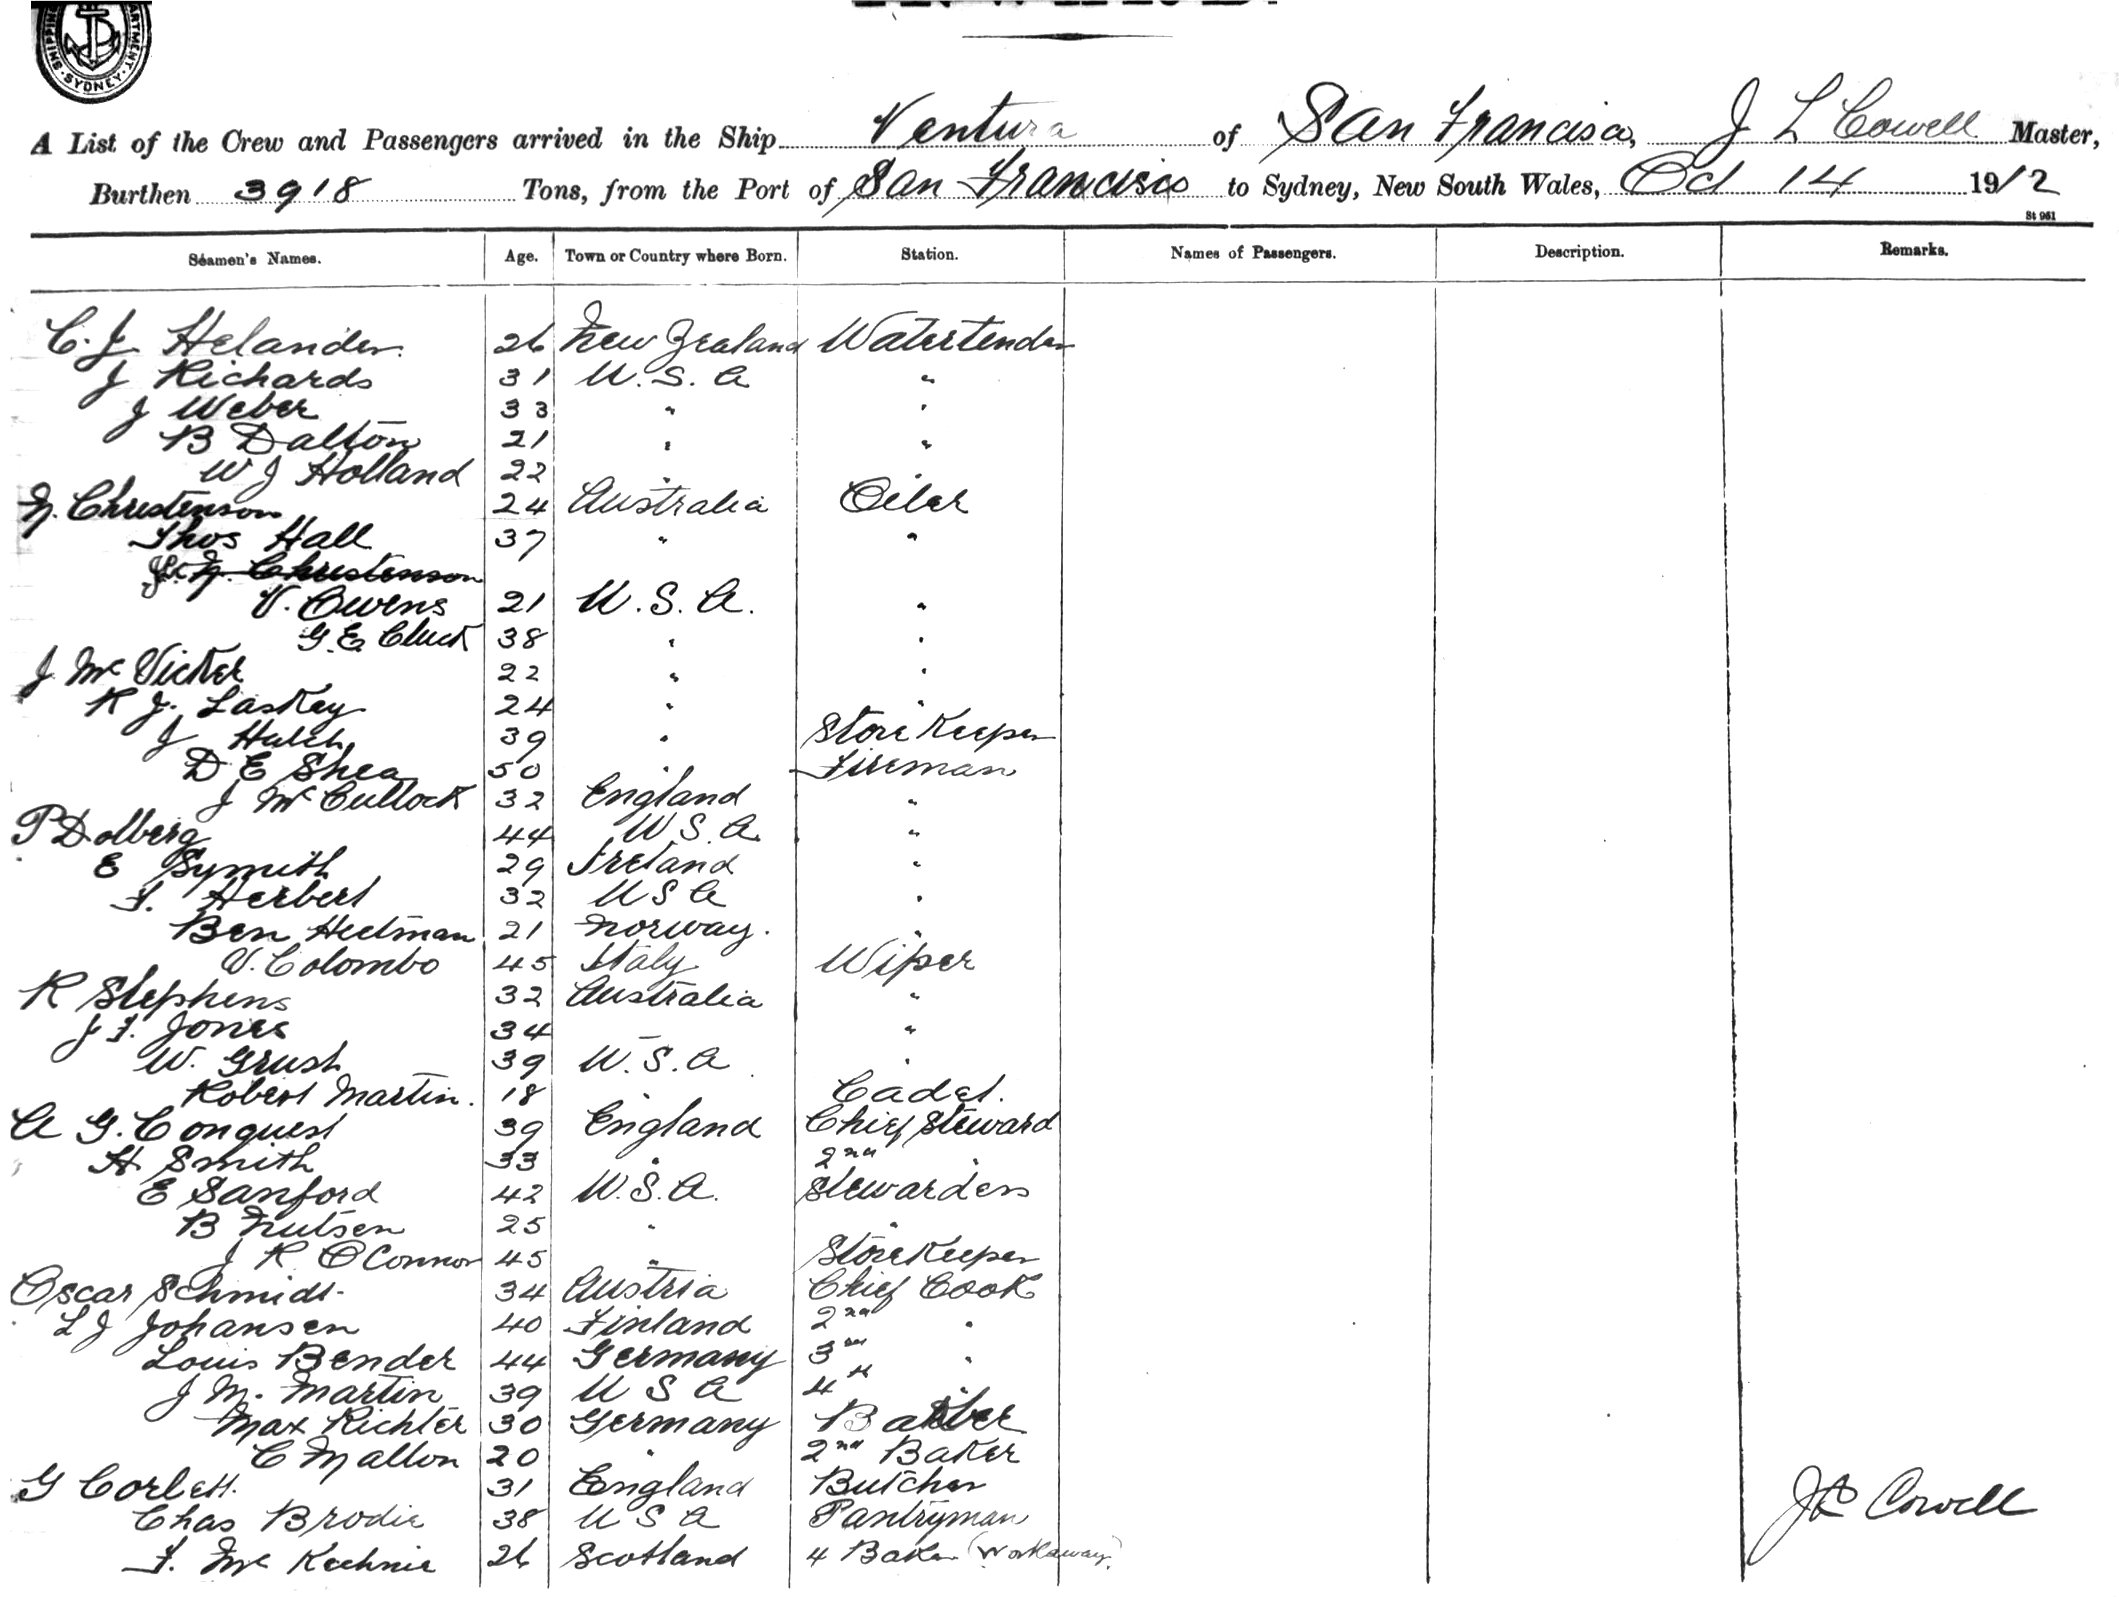 SHIPPING DEPARTMENT SYDNEY
A List of the Crew and Passengers arrived in the Ship Ventura of San Francisco, J L Cowell Master,
Burthen 3918 Tons, from the Port of San Francisco to Sydney, New South Wales, Oct 14 1912
St 961
Seamen's Names. Age. Town or Country where Born. Station. Names of Passengers. Description. Remarks.
C. J. Helander 26 New Zealand Watertender
J Richards 31 U.S.A "
J Weber 33 " "
B Dalton 21 " "
W J Holland 22 "
N. Christenson 24 Australia Oiler
Thos Hall 37 " "
N. Christenson
V. Owens 21 U.S.A. "
G. E. Cluck 38 " "
J. McVicker 22 " "
R J. Laskey 24 " "
J Hatch 39 " Store Keeper
D E Shea 50 " Fireman
J McCullock 32 England "
P Dolberg 44 U S. A. "
E Symith 29 Ireland "
F. Herbert 32 U S A "
Ben Heetman 21 Norway. "
V. Colombo 45 Italy Wiper
R Stephens 32 Australia "
J F. Jones 34 " "
W. Grush 39 U.S.A "
Robert Martin. 18 " Cadet.
A G. Conquest 39 England Chief Steward
H Smith 33 " 2nd "
E Sanford 42 U.S.A. Stewardess
B Nutsen 25 " "
J R O'Connor 45 " Storekeeper
Oscar Schmidt 34 Austria Chief Cook
L J Johansen 40 Finland 2nd "
Louis Bender 44 Germany 3rd "
J M. Martin 39 U S A 4th "
Max Richter 30 Germany Baker
C Mallon 20 " 2nd Baker
G Corbett. 31 England Butcher
Chas Brodie 38 U S A Pantryman
F. McKechnie 26 Scotland 4 Baker (Workaway)
J L Cowell